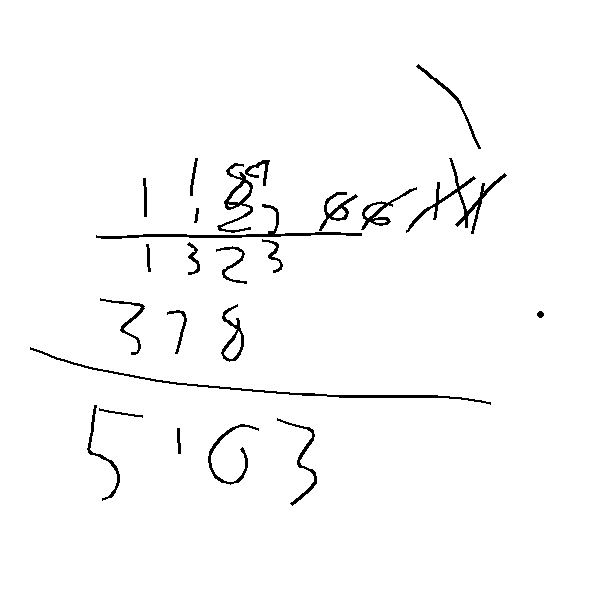 1189
127
1323
378
5103